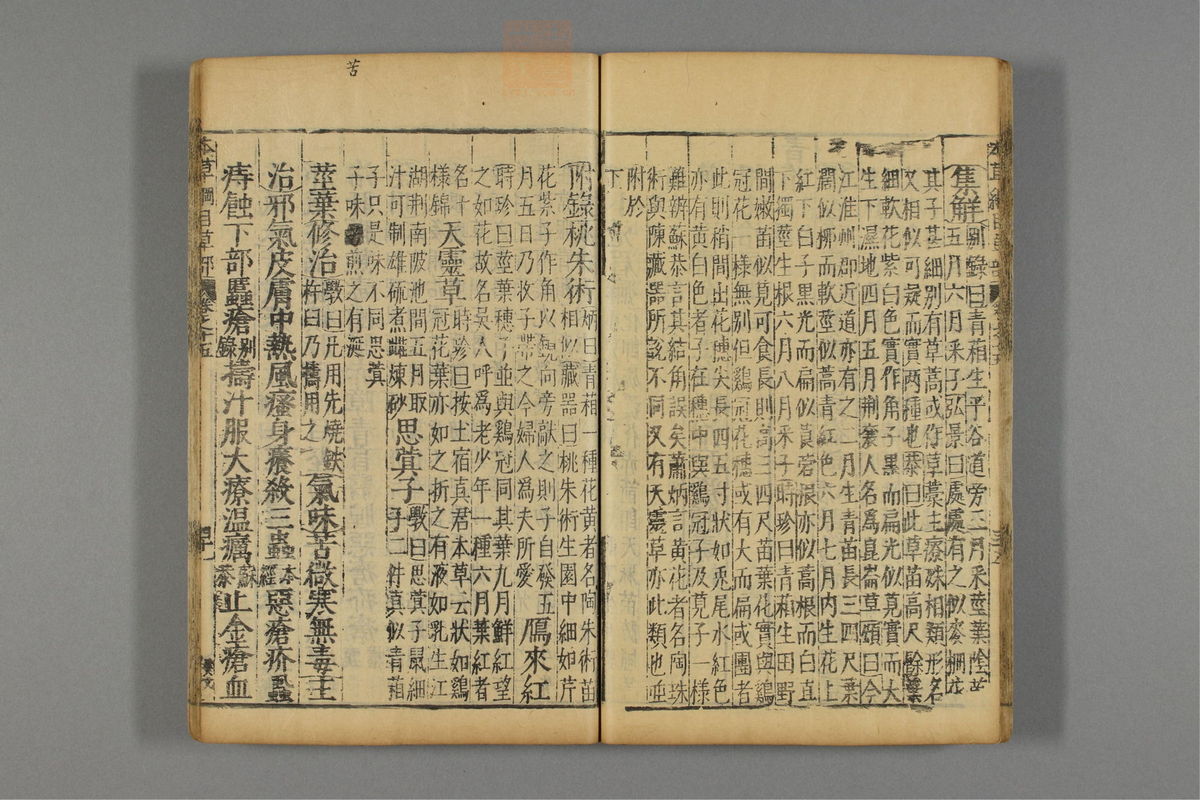 集解別錄曰青葙生平谷道旁三月采莖葉陰乾
其子甚細別有草蒿或作草藁主療殊相類形名
又相似可疑而實兩種也恭曰此草苗高尺餘葉
細軟花紫白色實作角子黑而扁光似莧實而大
生下濕地四月五月荊襄人名為崑崙草頌曰今
江淮州郡近道亦有之二月生青苗長三四尺葉
闊似柳而軟莖似蒿青紅色六月七月內生花上
紅下白子黑光而扁似莨菪根亦似蒿根而白直
下獨莖生根六月八月采子時珍曰青葙生田野
間嫩苗似莧可食長則高三四尺苗葉花實與鷄
冠花一樣無別但鷄冠花穗或有大而扁或團者
此則稍間出花穗尖長四五寸狀如兎尾水紅色
亦有黃白色者子在穗中與鷄冠子及莧子一樣
難辨蘇恭言其結角誤矣蕭炳言黃花者名陶珠
術與陳藏器所說不同又有天靈草亦此類也並
附於
下
附錄桃朱術炳曰青葙一種花黃者名陶朱術苗
相似藏器曰桃朱術生園中細如芹
花紫子作角以鏡向旁敲之則子自發五
月五日乃收子帶之令婦人為夫所愛鴈來紅
時珍曰莖葉穗子並與鷄冠同其葉九月鮮紅望
之如花故名吳人呼為老少年一種六月葉紅者
名十
樣錦天靈草時珍曰按土宿真君本草云狀如鷄
冠花葉亦如之折之有液如乳生江
湖荊南陂池間五月取
汁可制雄硫煮雌煉砂思蓂子斅曰思蓂子鼠細
子二件真似青葙
子只是味不同思蓂
子味煎之有涎
莖葉修治斅曰凡用先燒鉄
杵臼乃擣用之氣味苦微寒無毒主
治邪氣皮膚中熱風瘙身癢殺三蟲本
經惡瘡疥蝨
痔蝕下部䘌瘡別
錄擣汁服大療溫癘蘇
恭止金瘡血
本草綱目草部
卷之十五
苦